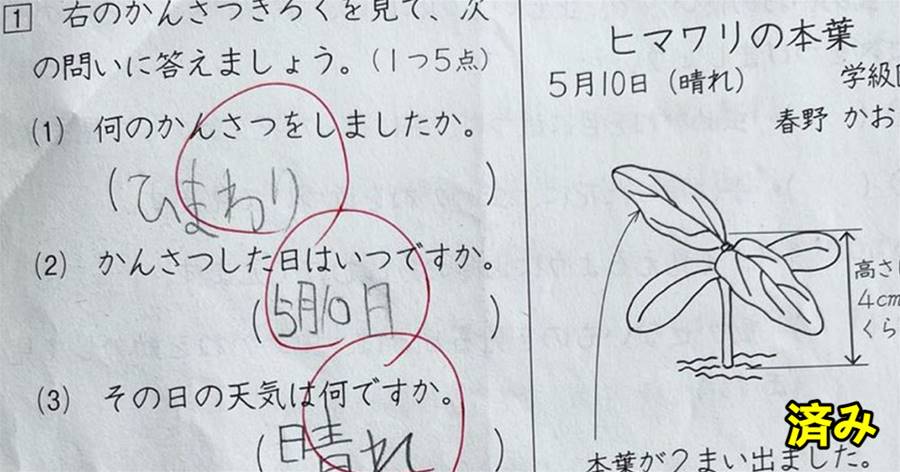 1 右のかんさつきろくを見て、次
の問いに答えましょう。(1つ5点)
(1) 何のかんさつをしましたか。
(ひまわり)
(2) かんさつした日はいつですか。
(5月10日)
(3) その日の天気は何ですか。
(晴れ
ヒマワリの本葉
5月10日(晴れ)
学級
春野 かお
高さ
4cm
くら
本葉が2まい出ました。
済み